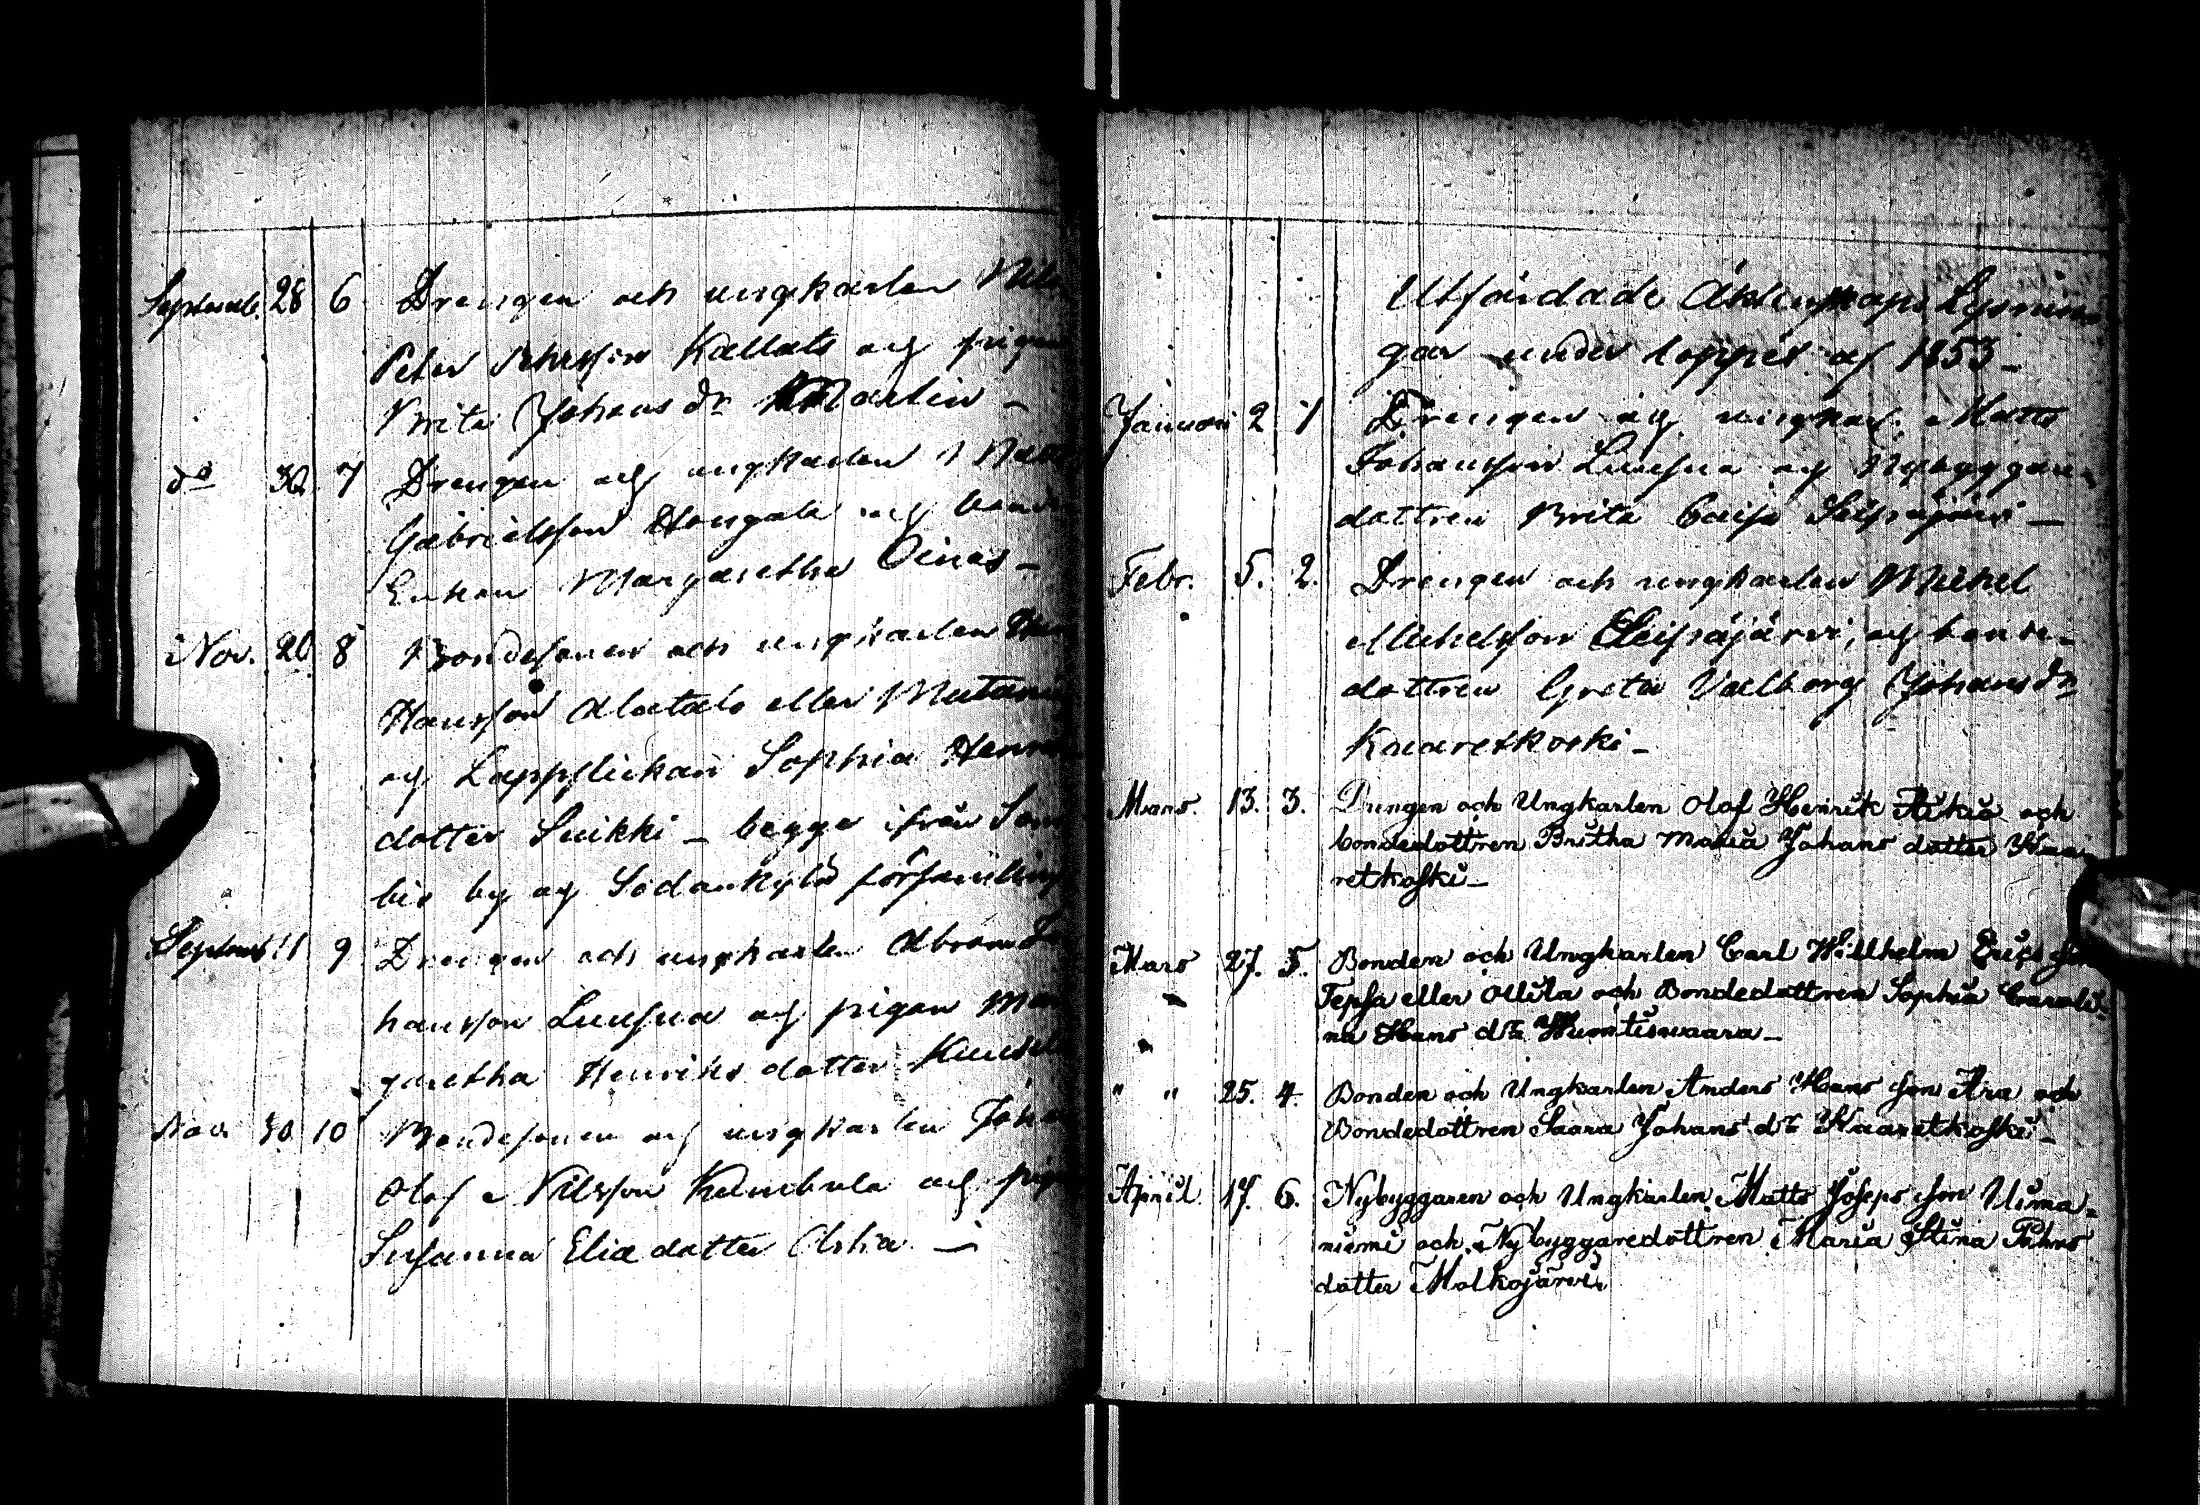 Septemb. 28 6 Drengen och ungkarlen Nils
Peter Kallats och pigan
Brita Johans dr Martin –
do 30. 7 Drengen och ungkarlen
Gabrielsson Hongala och
Enkan Margaretha Oinas –
Nov. 20 8 Bondesonen och ungkarlen
Hansson Alatalo eller
och Lappflickan Sophia
dotter Suikki – begge ifrån Som
bio by och Sodankylä församling
Septemb 11 9 Drengen och ungkarlen Abram Jo
hansson Luusua och pigan Mar
garetha Henriks dotter
Nov. 30 10 Bondesonen och ungkarlen Johan
Olof Nilsson och pigan
Susanna Elia dotter Askia –
Utfärdade Äktenskaps Lysnin
gar under loppet af 1853 –
Januari 2 1 Drengen och ungkarl. Matts
Johansson Luusua och Nybyggare
dottren Brita Caisa Seipäjärvi –
Febr. 5. 2. Drengen och ungkarlen Michel
Michelsson Seipäjärvi, och bonde-
dottren Greta Valborg Johans dr
Kaaretkoski –
Mars. 13. 3. Drengen och Ungkarlen Olof Henrik Aikio och
bondedottren Britha Maria Johans dotter Kaa
retkoski –
Mars 27. 5. Bonden och Ungkarlen Carl Willhelm Erics son
Tepsa eller Ollila och Bondedottren Sophia Caroli-
na Hans dr
" " 25. 4. Bonden och Ungkarlen Anders Hans son Ara och
Bondedottren Saara Johans dr Kaaretkoski –
April 17. 6. Nybyggaren och Ungkarlen Matts Joseps son Uima-
niemi och Nybyggaredottren Maria Stina Pehrs
dotter Molkojärvi